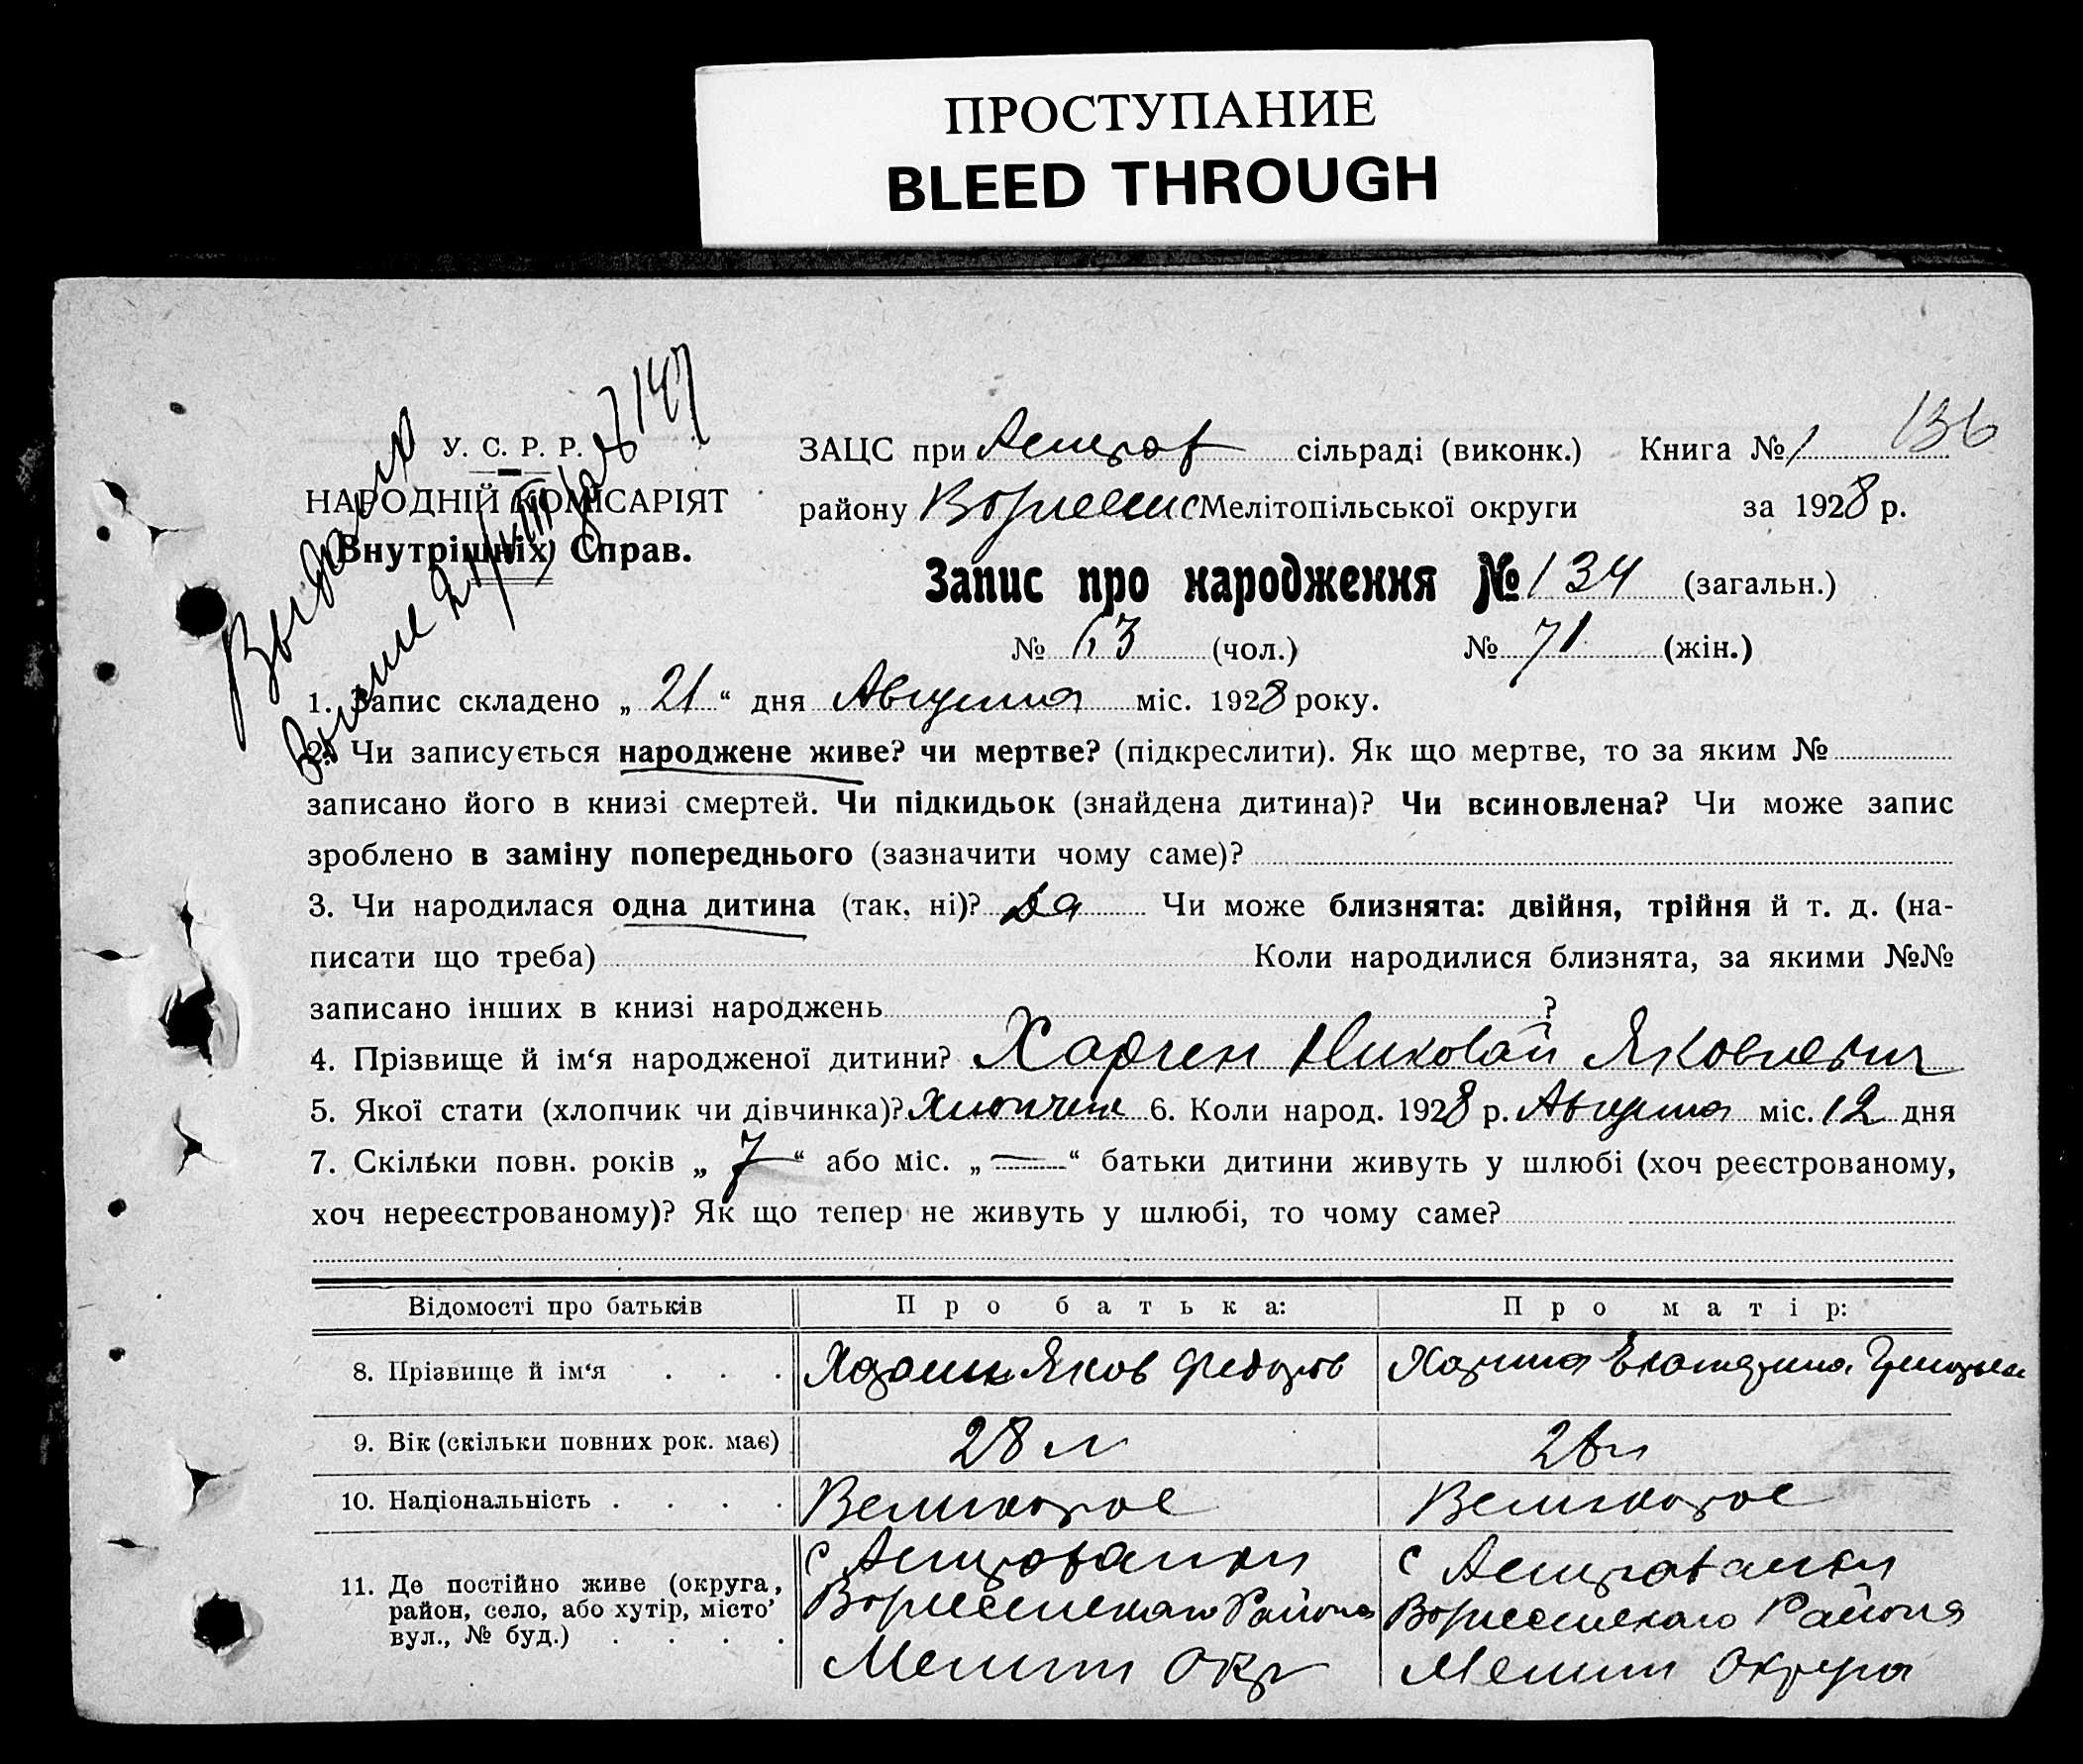 ПРОСТУПАНИЕ
BLEED THROUGH
У. С. Р. Р.
НАРОДНІЙ КОМІСАРІЯТ
Внутрішніх Справ.
ЗАЦС при сільраді (виконк.) Книга № 1 136
району Мелітопільської округи за 1928 р.
Запис про народження № 134 (загальн.)
№ 63 (чол.) № 71 (жін.)
1. Запис складено „ 21 “ дня Августа міс. 1928 року.
2. Чи записується народжене живе? чи мертве? (підкреслити). Як що мертве, то за яким №
записано його в книзі смертей. Чи підкидьок (знайдена дитина)? Чи всиновлена? Чи може запис
зроблено в заміну попереднього (зазначити чому саме)?
3. Чи народилася одна дитина (так, ні)? Да Чи може близнята: двійня, трійня й т. д. (на-
писати що треба) Коли народилися близнята, за якими №№
записано інших в книзі народжень ?
4. Прізвище й ім‘я народженої дитини? Николай Яковлевич
5. Якої стати (хлопчик чи дівчинка)? Хлопчик 6. Коли народ. 1928 р. Августа міс. 12 дня
7. Скільки повн. років „ 7 “ або міс. „ — “ батьки дитини живуть у шлюбі (хоч реєстрованому,
хоч нереєстрованому)? Як що тепер не живуть у шлюбі, то чому саме?
Відомості про батьків Про батька: Про матір:
8. Прізвище й ім‘я . . . Яков Федоров Екатерина
9. Вік (скільки повних рок. має) 28 л
10. Національність . . . . Великорос Великорос
11. Де постійно живе (округа,
район, село, або хутір, місто’
вул., № буд.) . . . .
с с
Района Района
Мелит Окр Мелит Округа
Выдана